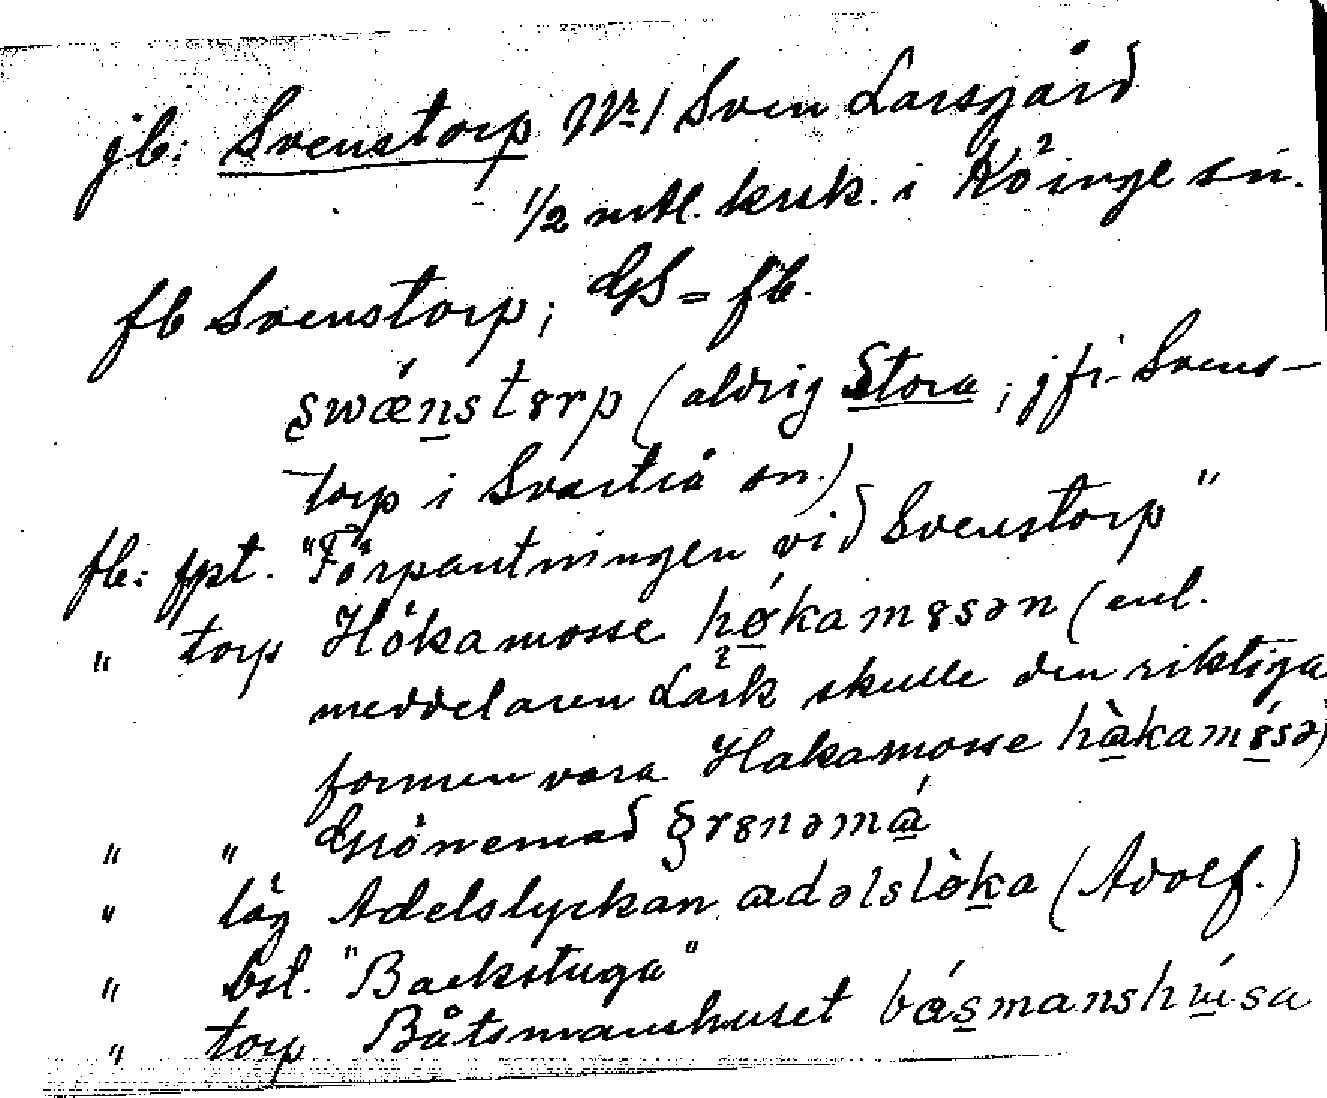 jb: Svenstorp Nr 1 Sven Larsgård
1/2 mtl. krsk. i Köinge sn.
fb Svenstorp; GS = fb.
swǽnstɤrp (aldrig Stora; jfr Svens-
torp i Svartrå sn.)
fb: fpt. "Förpantningen vid Svenstorp"
" torp Hökamosse hǿkamɤsən (enl.
meddelaren Lark skulle den riktiga
formen vara Hakamosse hàkamɤ́sə)
" " Grönemad grɤnəmá
" läg Adelslyckan adəlslø̀ka (Adolf.)
" bst. "Backstuga"
" torp Båtsmanshuset básmanshúsa